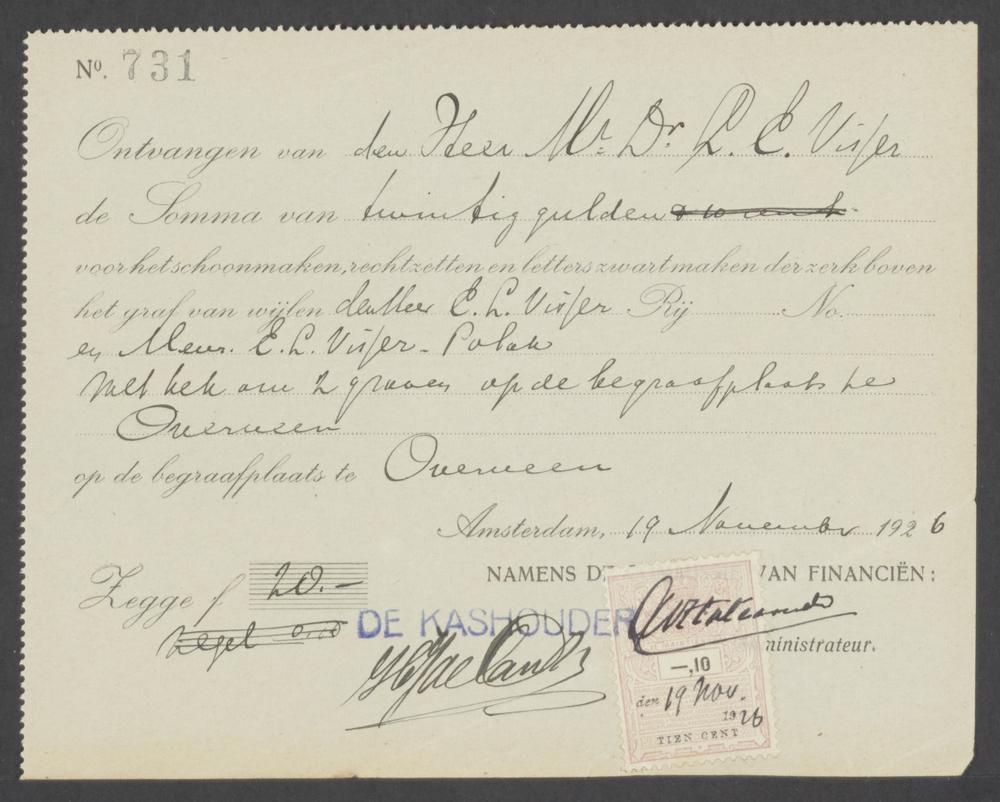 Nº. 731
Ontvangen van den Heer Mr. Dr. L. E. Visser
de Somma van twintig gulden
voor het schoonmaken, rechtzetten en letters zwart maken der zerk boven
het graf van wijlen den Heer E. L. Visser Rij No.
en Mevr. E. L. Visser - Polak
Met hek om 2 graven op de begraafplaats te
Overveen
op de begraafplaats te Overveen
Amsterdam, 19 November 1926
NAMENS DE VAN FINANCIËN:
Zegge f 20.-
zegel 0.10
DE KASHOUDER
ministrateur.
—,10
den 19 Nov.
1926
TIEN CENT